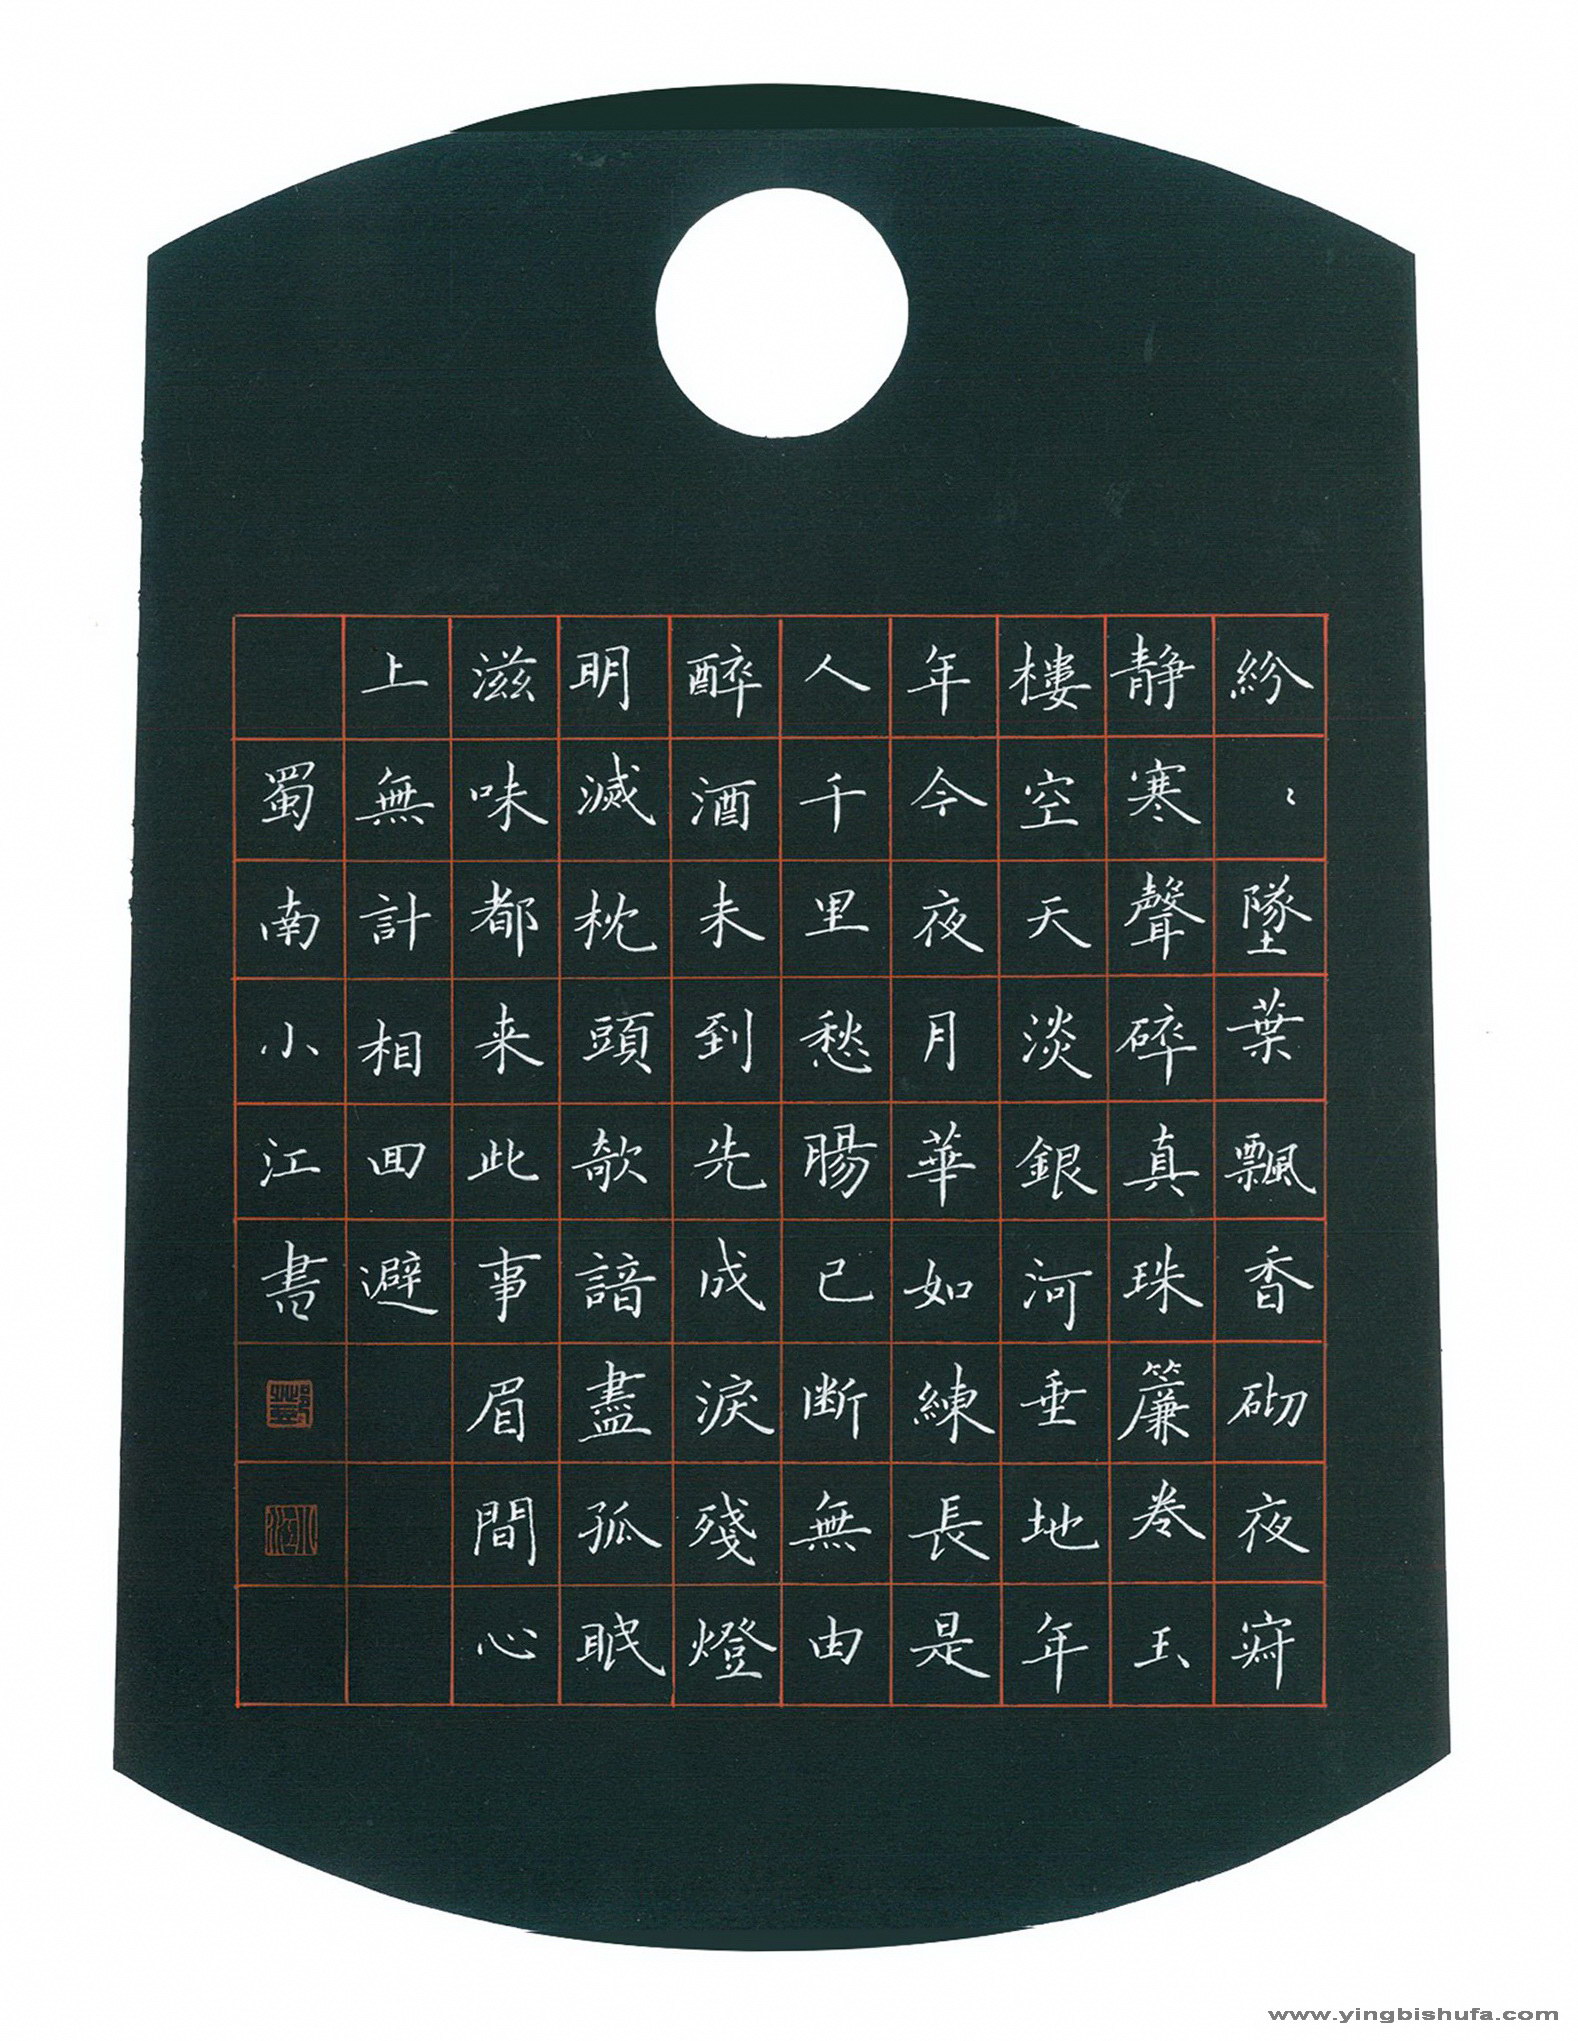 紛〻墜葉飄香砌夜寂
静寒聲碎真珠簾卷玉
樓空天淡銀河垂地年
年今夜月華如練長是
人千里愁腸已断無由
醉酒未到先成淚殘燈
明滅枕頭欹諳盡孤眠
滋味都来此事眉間心
上無計相回避
蜀南小江書
www.yingbishufa.com